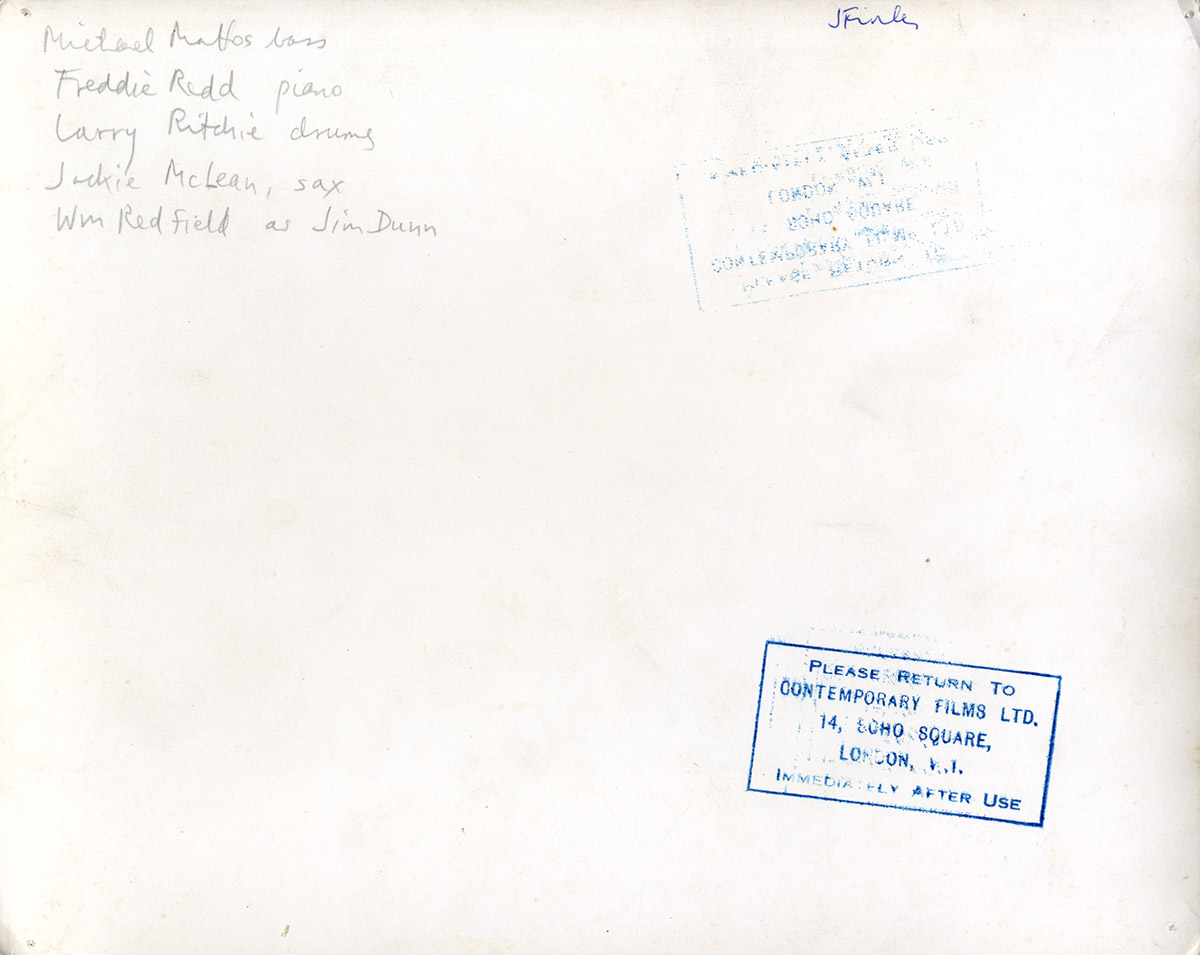 Michael Mattos bass
Freddie Redd piano
Larry Ritchie drums
Jackie McLean, sax
Wm Redfield as Jim Dunn
LONDON
SOHO SQUARE
CONTEMPORARY FILMS LTD
PLEASE RETURN TO
PLEASE RETURN TO
CONTEMPORARY FILMS LTD.
14, SOHO SQUARE,
LONDON, W.1.
IMMEDIATELY AFTER USE